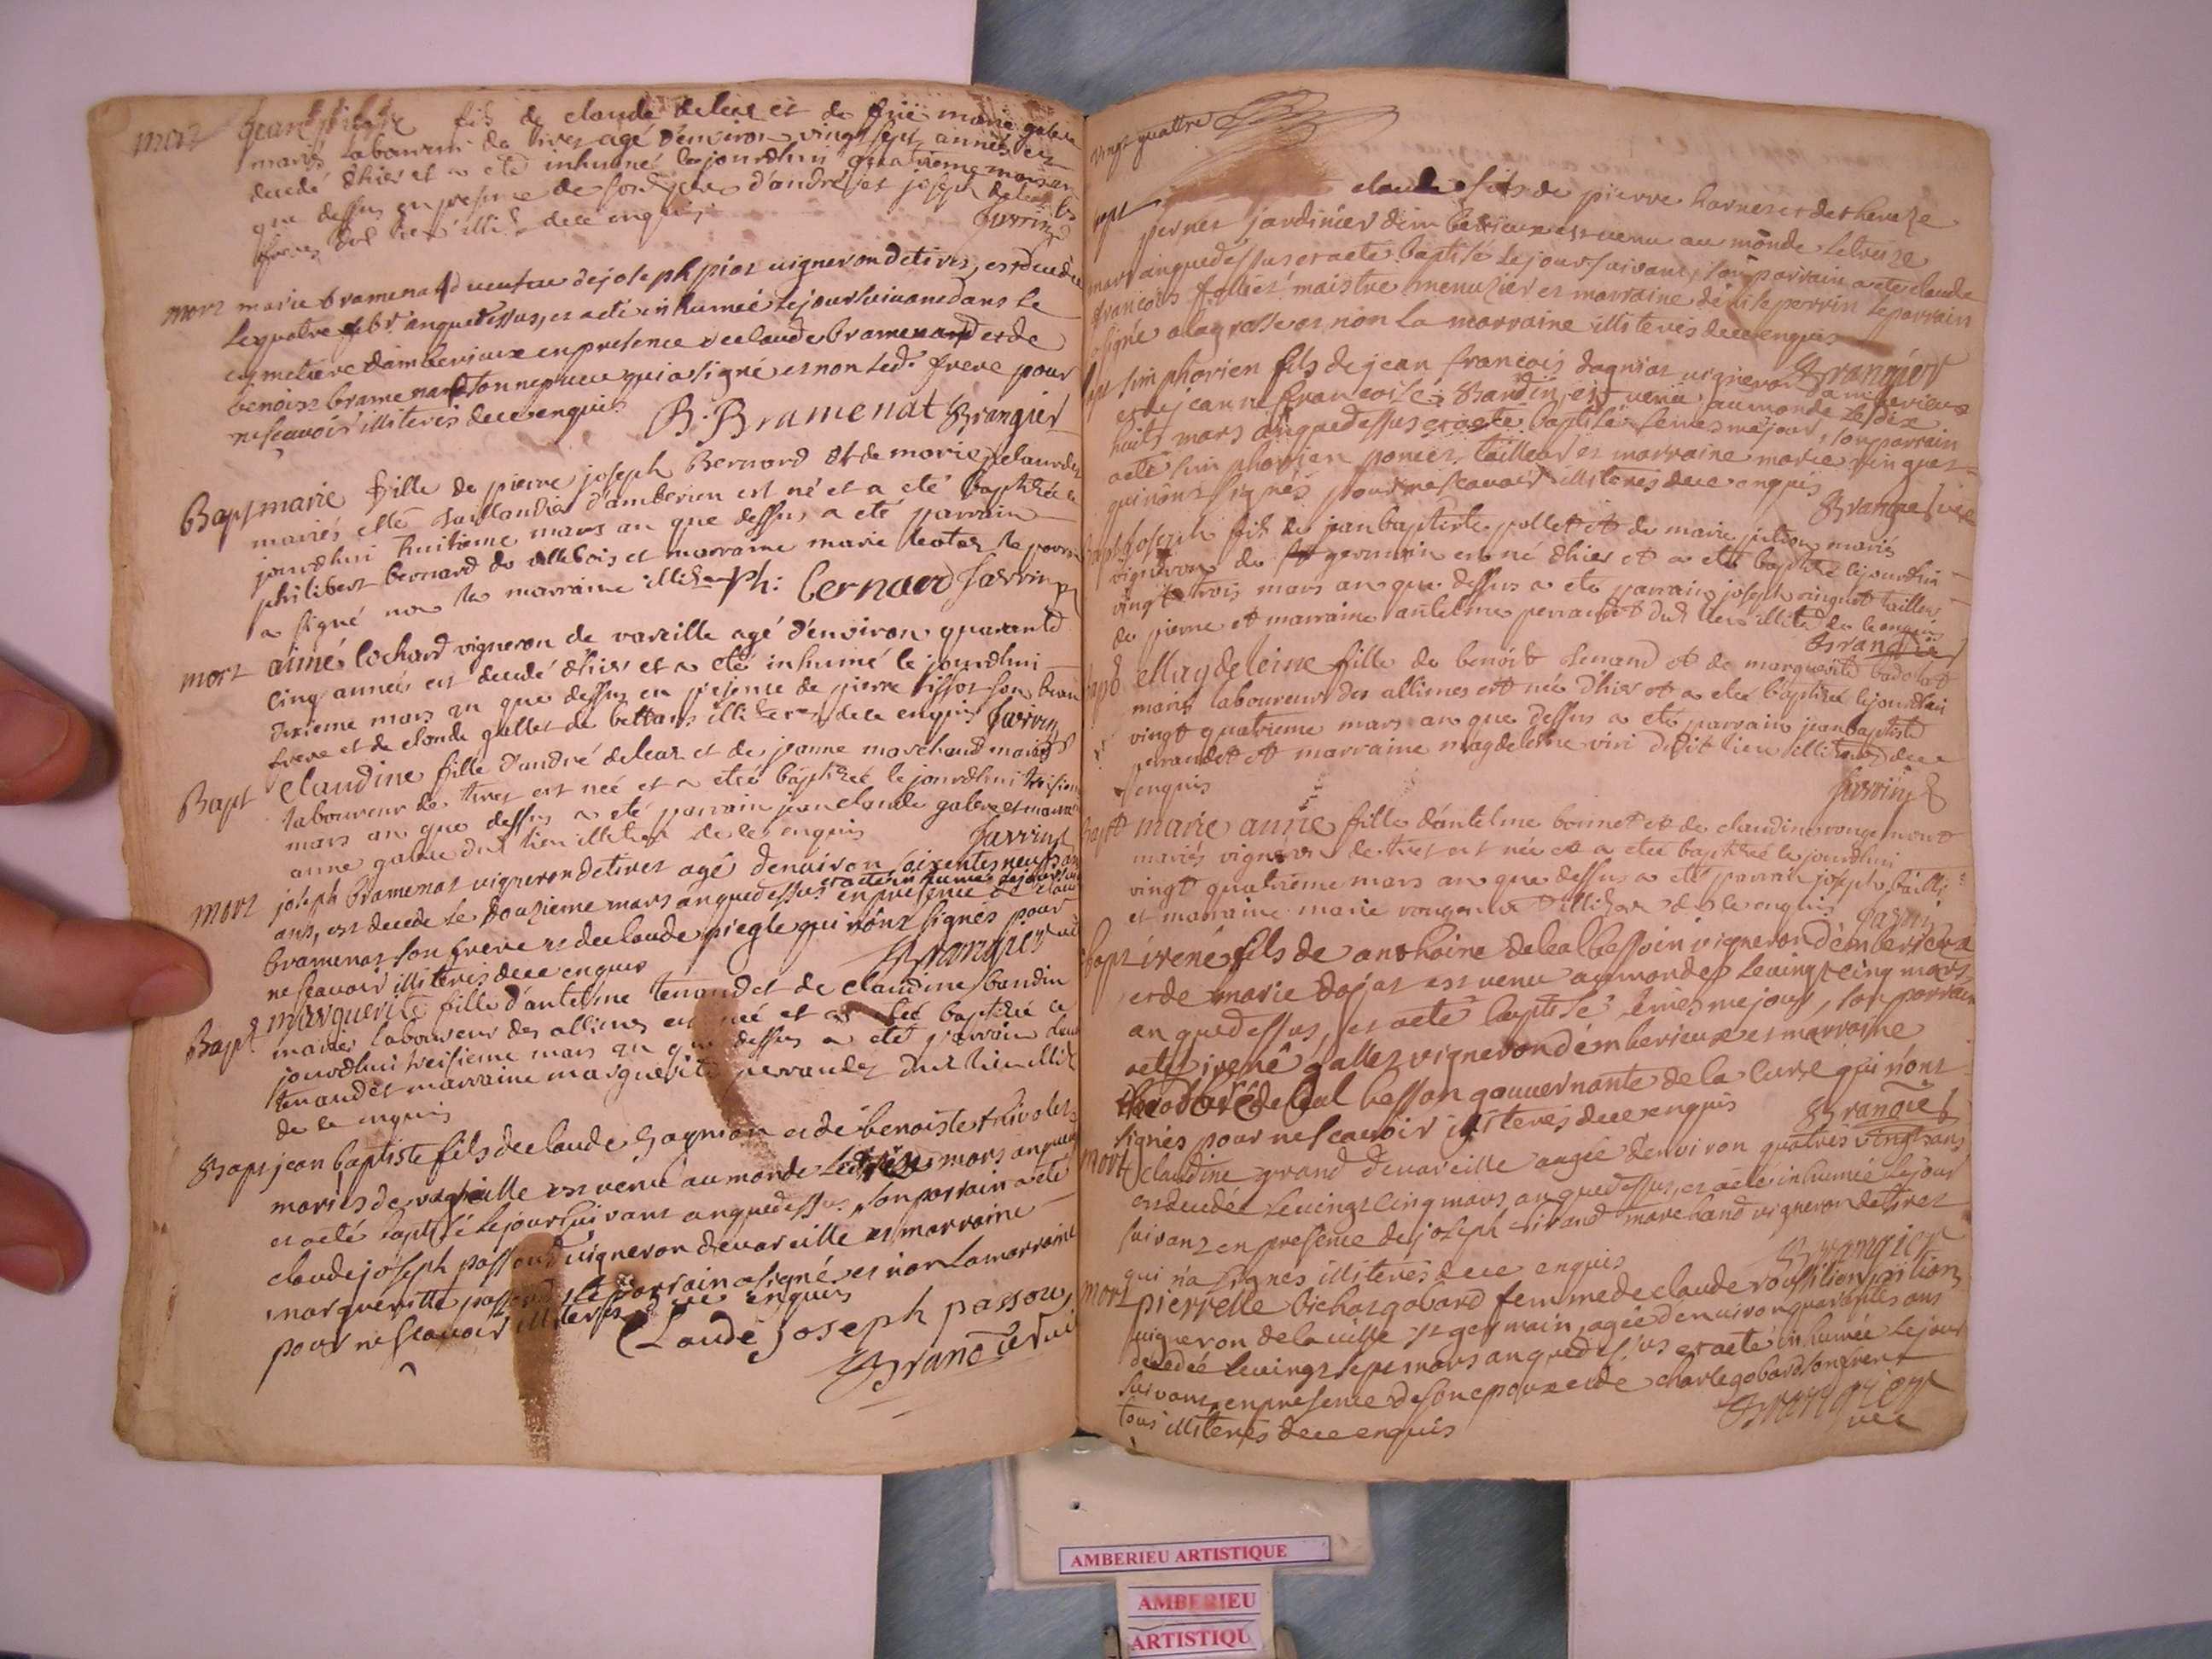 mort jean fils de claude deleaz et de feüe marie galere
mariés laboureur de tiret agé d'environ vingt sept années est
decedé d'hier et a eté inhumé le jourdhui quatrieme mars an
que dessus en presence de son pere d'andré et joseph deleaz ses
freres dud lieu illit. de ce enquis
Jarrin
mort marie bramenand veufve de joseph pioz vigneron de tiret, est decedée
le quatre febr. anquedessus, et a eté inhumée le jour suivant dans le
cymetiere d'amberieux en presence de claude bramenand et de
benoist bramenand son nepveu qui a signé et non led. frere pour
ne scavoir illiterés de ce enquis
B. Bramenat Brangier
Bapt marie fille de pierre joseph Bernard et de marie
mariés taillandier d'amberieu est né et a eté baptizée le
jourdhui huitieme mars an que dessus a eté parrain
philibert bernard de et marraine marie le parrain
a signé non la marraine illit. Ph: bernard Jarrin
mort aimé lochard vigneron de vareille agé d'environ quarante
cinq années est decedé d'hier et a eté inhumé le jourdhui
dixieme mars an que dessus en presence de pierre tissot son beau
frere et de claude gallet de bettans illiterés de ce enquis Jarrin
Bapt Claudine fille d'andré deleaz et de jeanne marchand mariés
laboureur de tiret est née et a eté baptizée le jourdhui
mars an que dessus a eté parrain jean claude galere et marraine
anne galere dud lieu illiterés de ce enquis Jarrin
mort joseph bramenat vigneron de tiret agé denviron soixante neuf
ans, est decedé le douzieme mars anquedessus et a eté inhumé le jour suivant en presence de claude
bramenat son frere et de claude piegle qui n'ont signés pour
ne scavoir illiterés de ce enquis Brangier vic
Bapt marguerite fille d'antelme tenand et de claudine baudin
mariés laboureur des allimes est née et a eté baptizée ce
jourdhui treisieme mars an que dessus a eté parrain
tenand et marraine marguerite perraudet dud lieu illit.
de ce enquis
Bapt jean baptiste fils de claude gagnion et de benoiste thivolet
mariés de vareille est venu au monde le treize mars anquedessus
et a eté baptisé le jour suivant anquedessus, son parrain a eté
claude joseph passoud vigneron de vareille et marraine
margueritte passoud, le parrain a signé et non la marraine
pour ne scavoir illiterés de ce enquis
Claude Joseph passoux
Brangier vic
vingt quattre
bapt claude fils de pierre harnes et de thereze
pernet jardinier dem berieux est venu au monde le treize
mars anquedessus et a eté baptisé le jour suivant, son parrain a eté claude
francois follies maistre menuzier et marraine denise perrin le parrain
signé a la grosse et non la marraine illiterés de ce enquis
Brangier
bapt simphorien fils de jean francois dagniat vigneron d'amberieux
et de jeanne francoise Bardin, est venu au monde le dix
huit mars anquedessus et a eté baptisé le mesme jour, son parrain
a eté simphorien poncet tailleur et marraine marie vinquet
qui n'ont signés pour ne scavoir illiterés de ce enquis
Brangier vic
bapt Joseph fils de jean baptiste pollet et de marie pition mariés
vigneron de st germain est né d'hier et a eté baptizé le jourdhui
vingt trois mars an que dessus a eté parrain joseph vinquet tailleur
de pierre et marraine antelme perraudet dud lieu illit. de ce enquis
Brangier
bapt Magdeleine fille de benoist tenand et de marguerite badollat
mariés laboureur des allimes est née d'hier et a eté baptizée le jourdhui
vingt quatrieme mars an que dessus a eté parrain jean baptiste
perraudet et marraine magdeleine viri dudit lieu illiterés de ce
enquis
Jarrin
bapt marie anne fille d'antelme bonnet et de claudine rougemont
mariés vigneron de tiret est née et a eté baptizée le jourdhui
vingt quatrieme mars an que dessus a eté parrain joseph
et marraine marie rougemont illiterés de ce enquis Jarrin
bapt irené fils de anthoine deleal bessoin vigneron d'emberieux
et de marie dojat est venu au monde le vingt cinq mars
an quedessus, et a eté baptisé le mesme jour, son parrain
a eté irené gallet vigneron d'emberieux et marraine
theodore deleal besson gouvernante de la cure qui n'ont
signés pour ne scavoir illiterés de ce enquis Brangier
mort claudine grand de vareille augée denviron quatres vingts ans
est decedée le vingt cinq mars anquedessus, et a eté inhumée le jour
suivant en presence de joseph tirand marchand vigneron de tiret
qui n'a signés illiterés de ce enquis
Brangier
mort pierrette bichat gobard femme de claude roussilion pition
vigneron de la ville st germain, agée denviron quarantes ans
decedée le vingt sept mars anquedessus et a eté inhumée le jour
suivant, en presence de son epoux et de charle gobard son frere
tous illiterés de ce enquis
Brangier
vic
AMBERIEU ARTISTIQUE
AMBERIEU
ARTISTIQU